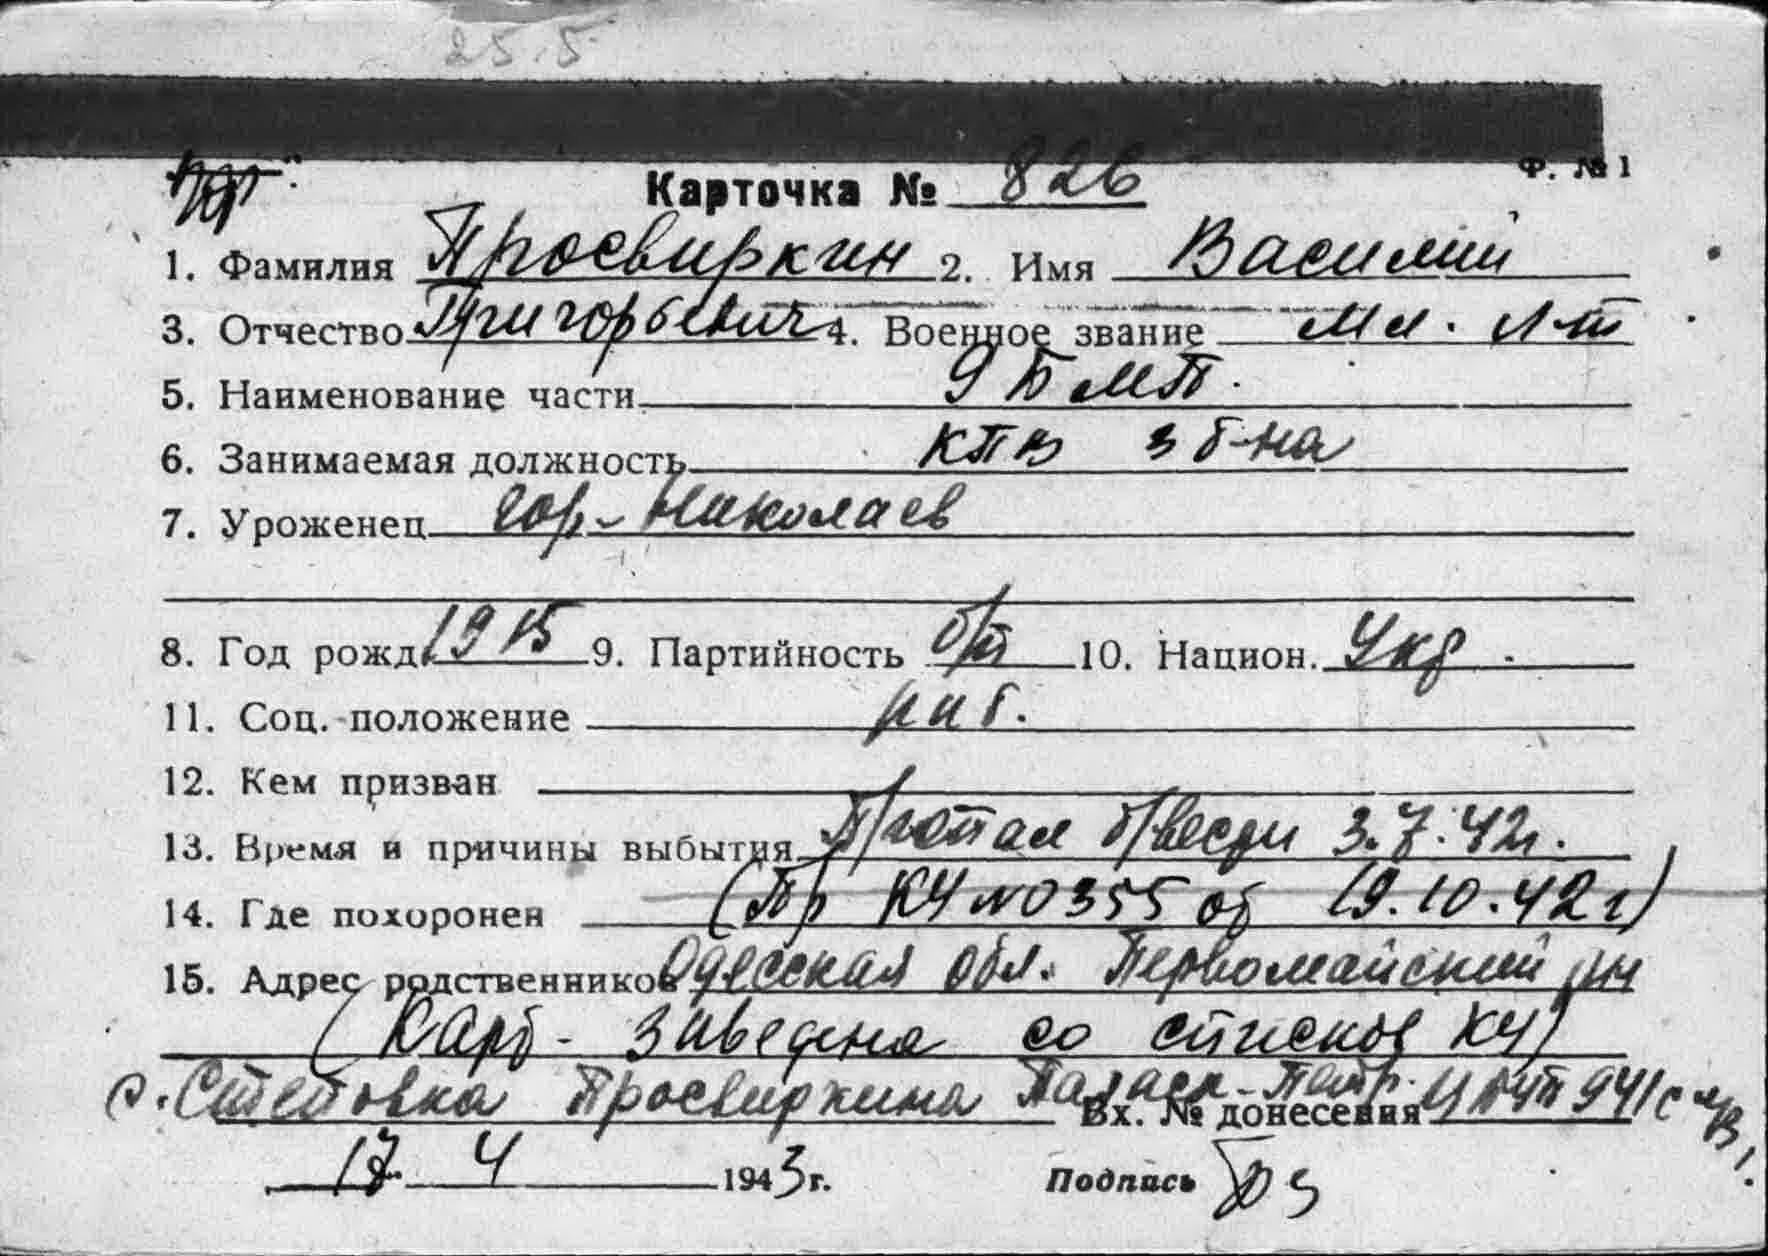 25.5
Ф. № 1
Карточка № 826
1. Фамилия Просвиркин 2. Имя Василий
3. Отчество Григорьевич 4. Военное звание мл. л-т
5. Наименование части 9 БМП.
6. Занимаемая должность КПВ 3 б-на
7. Уроженец гор. Николаев
8. Год рожд. 1915 9. Партийность б/п 10. Национ. Укр.
11. Соц. положение раб.
12. Кем призван
13. Время и причины выбытия Пропал б/вести 3.7.42г.
14. Где похоронен (Пр КЧ №0355 от 19.10.42 г)
15. Адрес родственников Одесская обл. Первомайский рн
(Карт. заведена со списков КЧ)
с. Степовка Просвиркина Параск. Петр.
Вх. № донесения 941с
17. 4 1943 г. Подпись